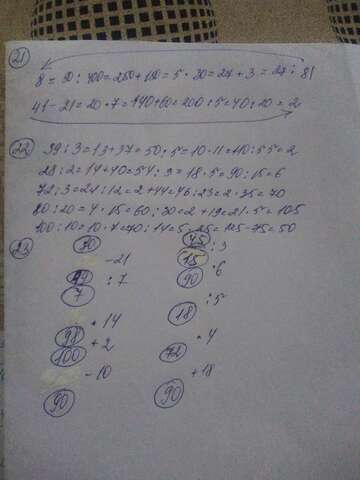 21
8 = 50 : 400 = 250 + 150 = 5 · 30 = 27 + 3 = 27 : 81
41 - 21 = 20 · 7 = 140 + 60 = 200 : 5 = 40 : 20 = 2
22
39 : 3 = 13 + 37 = 50 : 5 = 10 · 11 = 110 : 55 = 2
28 : 2 = 14 + 40 = 54 : 3 = 18 · 5 = 90 : 15 = 6
72 : 3 = 24 : 12 = 2 + 44 = 46 : 23 = 2 · 35 = 70
80 : 20 = 4 · 15 = 60 : 30 = 2 + 19 = 21 · 5 = 105
100 : 10 = 10 · 7 = 70 : 14 = 5 · 25 = 125 - 75 = 50
23
70 45 : 3
- 21 15
49 : 7 90 · 6
7 : 5
· 14 18
98 + 2 · 4
100 72
- 10 + 18
90 90